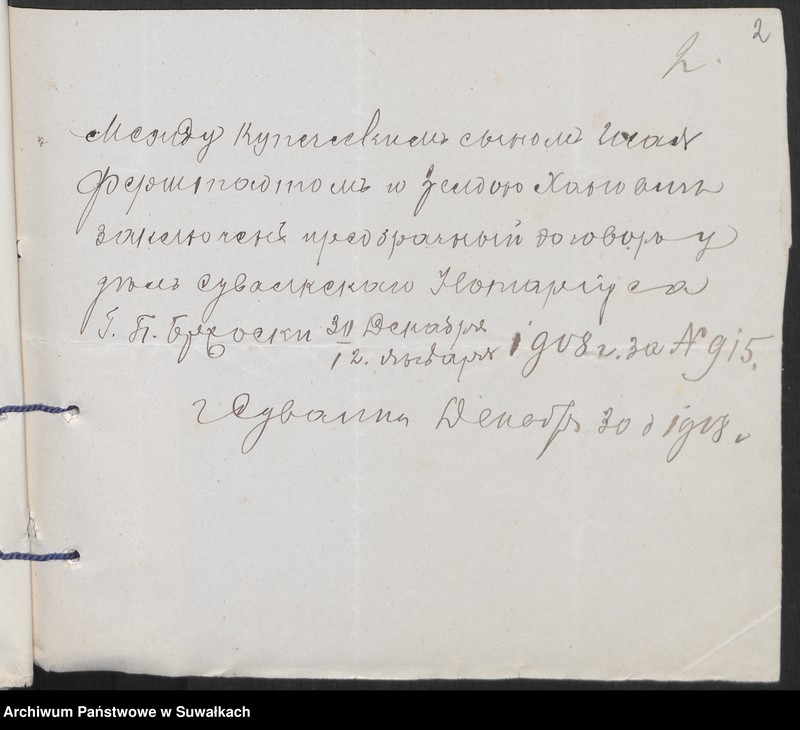 2
2.
Между купеческимъ сыномъ
Ферштатомъ и Зельдою
заключенъ предбрачный договоръ у
дѣлъ Сувалкскаго Нотаріуса
Г. П. 30 Декабря
12 января 1908 г. за № 915.
г Сувалки Декабр 30 д 1908 г
Archiwum Państwowe w Suwałkach